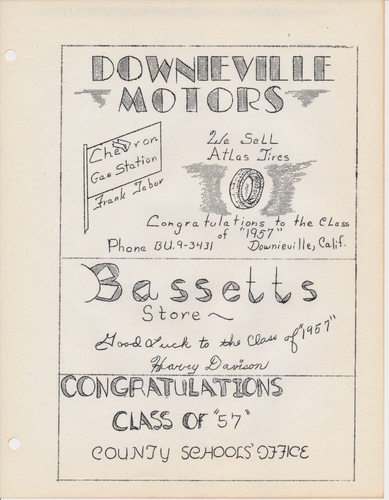 DOWNIEVILLE
MOTORS
Chevron
Gas Station
Frank Tabor
We Sell
Atlas Tires
Congratulations to the Class
of "1957"
Phone BU.9-3431 Downieville, Calif.
Bassetts
Store ~
Good Luck to the Class of "1957"
Harry Davison
CONGRATULATIONS
CLASS OF "57"
COUNTY SCHOOLS' OFFICE